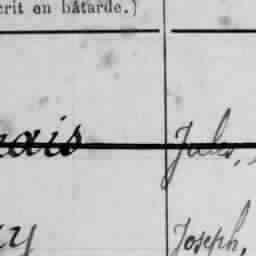 crit en bâtarde.)
ais Jules,
y Joseph,